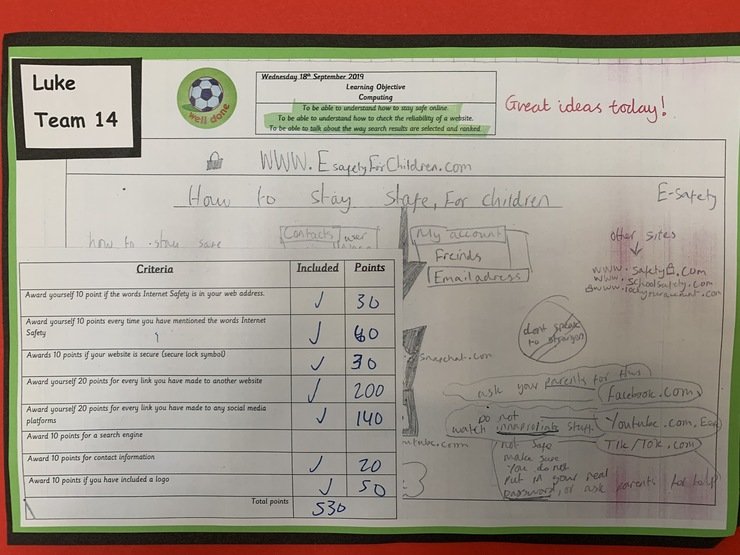 Luke
Team 14
well done
Wednesday 18th September 2019
Learning Objective
Computing
To be able to understand how to stay safe online.
To be able to understand how to check the reliability of a website.
To be able to talk about the way search results are selected and ranked.
Great ideas today!
WWW.EsafetyForChildren.com
How to stay stafe, For children
E-safety
how to stay safe
Contacts
user
My account
Freinds
Email adress
other sites
www.safety.com
www.schoolsafety.com
dont speak
to strangers
snapchat.com
ask your parents for this
Facebook.com
Do not
watch innapropiate stuff
Youtube.com
Tik/Tok.com
not safe
make sure
You do not
put in your real
password, or ask parents for help
Criteria Included Points
Award yourself 10 point if the words Internet Safety is in your web address. ✓ 30
Award yourself 10 points every time you have mentioned the words Internet
Safety ✓ 60
Awards 10 points if your website is secure (secure lock symbol) ✓ 30
Award yourself 20 points for every link you have made to another website ✓ 200
Award yourself 20 points for every link you have made to any social media
platforms ✓ 140
Award 10 points for a search engine
Award 10 points for contact information ✓ 20
Award 10 points if you have included a logo ✓ 50
Total points 530